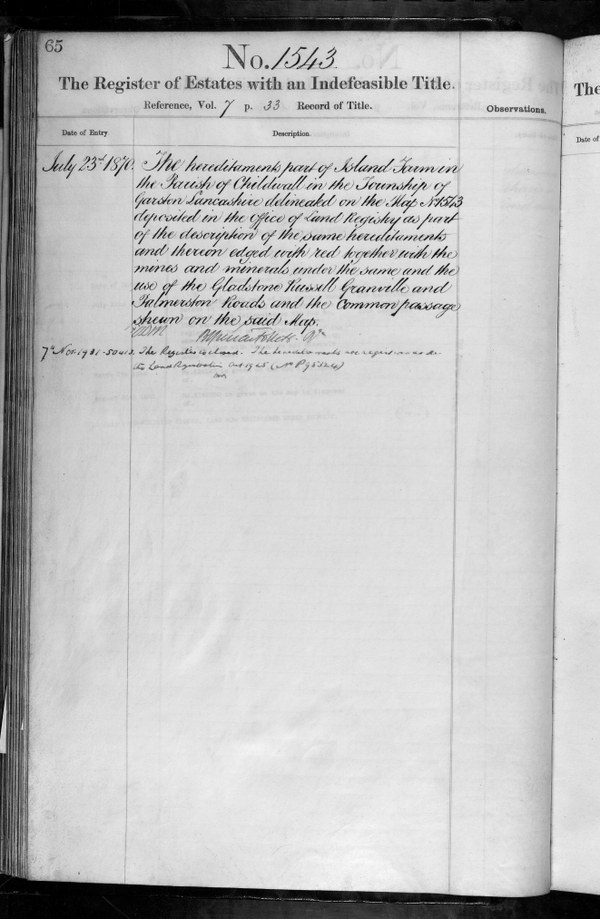 65
No. 1543.
The Register of Estates with an Indefeasible Title.
Reference, Vol. 7 p. 33 Record of Title.
Observations.
Date of Entry
Description.
July 23rd 1870.
The hereditaments part of Island Farm in
the Parish of Childwall in the Township of
Garston Lancashire delineated on the Map No 1543
deposited in the office of Land Registry as part
of the description of the same hereditaments
and thereon edged with red together with the
mines and minerals under the same and the
use of the Gladstone Russell Granville and
Palmerston Roads and the Common passage
shewn on the said Map.
7th Nov. 1931 - 50413. The Register is closed. The hereditaments are registered under
the Land Registration Act 1925 (No P 95524)
The
Date of